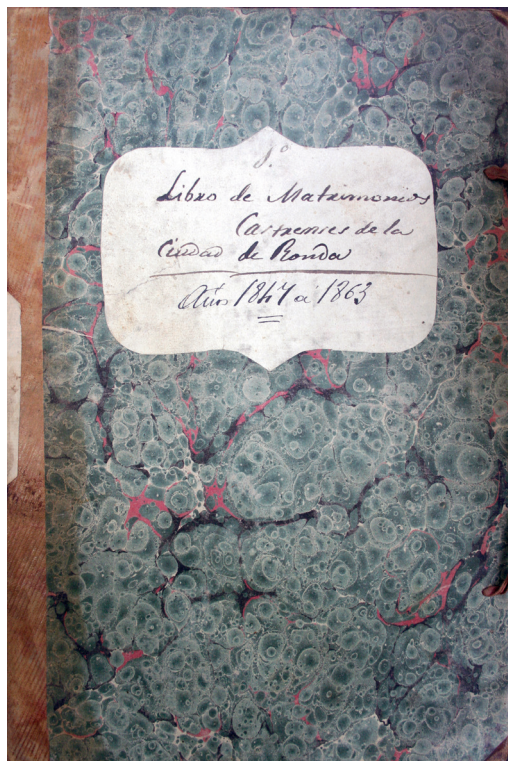 1.º
Libro de Matrimonios
Castrenses de la
Ciudad de Ronda
Años 1847 a 1863